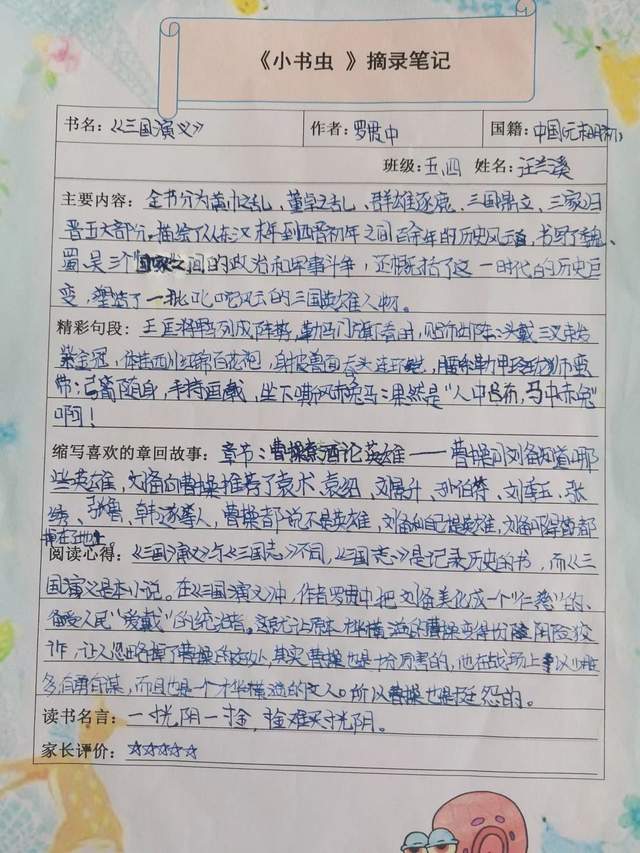 《小书虫 》摘录笔记
书名：《三国演义》 作者：罗贯中 国籍：中国(元末明初)
班级：五.四 姓名：汪兰溪
主要内容：全书分为黄巾之乱、董卓之乱、群雄逐鹿、三国鼎立、三家归
晋五大部分。描绘了从东汉末年到西晋初年之间百余年的历史风云，书写了魏、
蜀、吴三个国家之间的政治和军事斗争，还概括了这一时代的历史巨
变，塑造了一批叱咤风云的三国英雄人物。
精彩句段：王匡将军列成阵势，勒马门旗看时，见吕布出阵：头戴三叉束发
紫金冠，体挂西川红锦百花袍，身披兽面吞头连环铠，腰系勒甲玲珑狮蛮
带；弓箭随身，手持画戟，坐下嘶风赤兔马：果然是“人中吕布，马中赤兔”
啊！
缩写喜欢的章回故事：章节：曹操煮酒论英雄——曹操问刘备知道哪
些英雄，刘备向曹操推荐了袁术、袁绍、刘景升、孙伯符、刘季玉、张
绣、张鲁、韩遂等人，曹操都说不是英雄，刘备和自己是英雄，刘备吓得筷都
掉在了地上
阅读心得：《三国演义》与《三国志》不同，《三国志》是记录历史的书，而《三
国演义》是本小说。在《三国演义》中，作者罗贯中把刘备美化成一个“仁慈”的、
备受人民“爱戴”的统治者。这就让原本才华横溢的曹操变得凶险阴险狡
诈，让人忽略掉了曹操的好处，其实曹操也是十分厉害的，他在战场上以少胜
多有勇有谋，而且也是一个才华横溢的文人。所以曹操也是挺冤的。
读书名言：一寸光阴一寸金，寸金难买寸光阴。
家长评价：☆☆☆☆☆